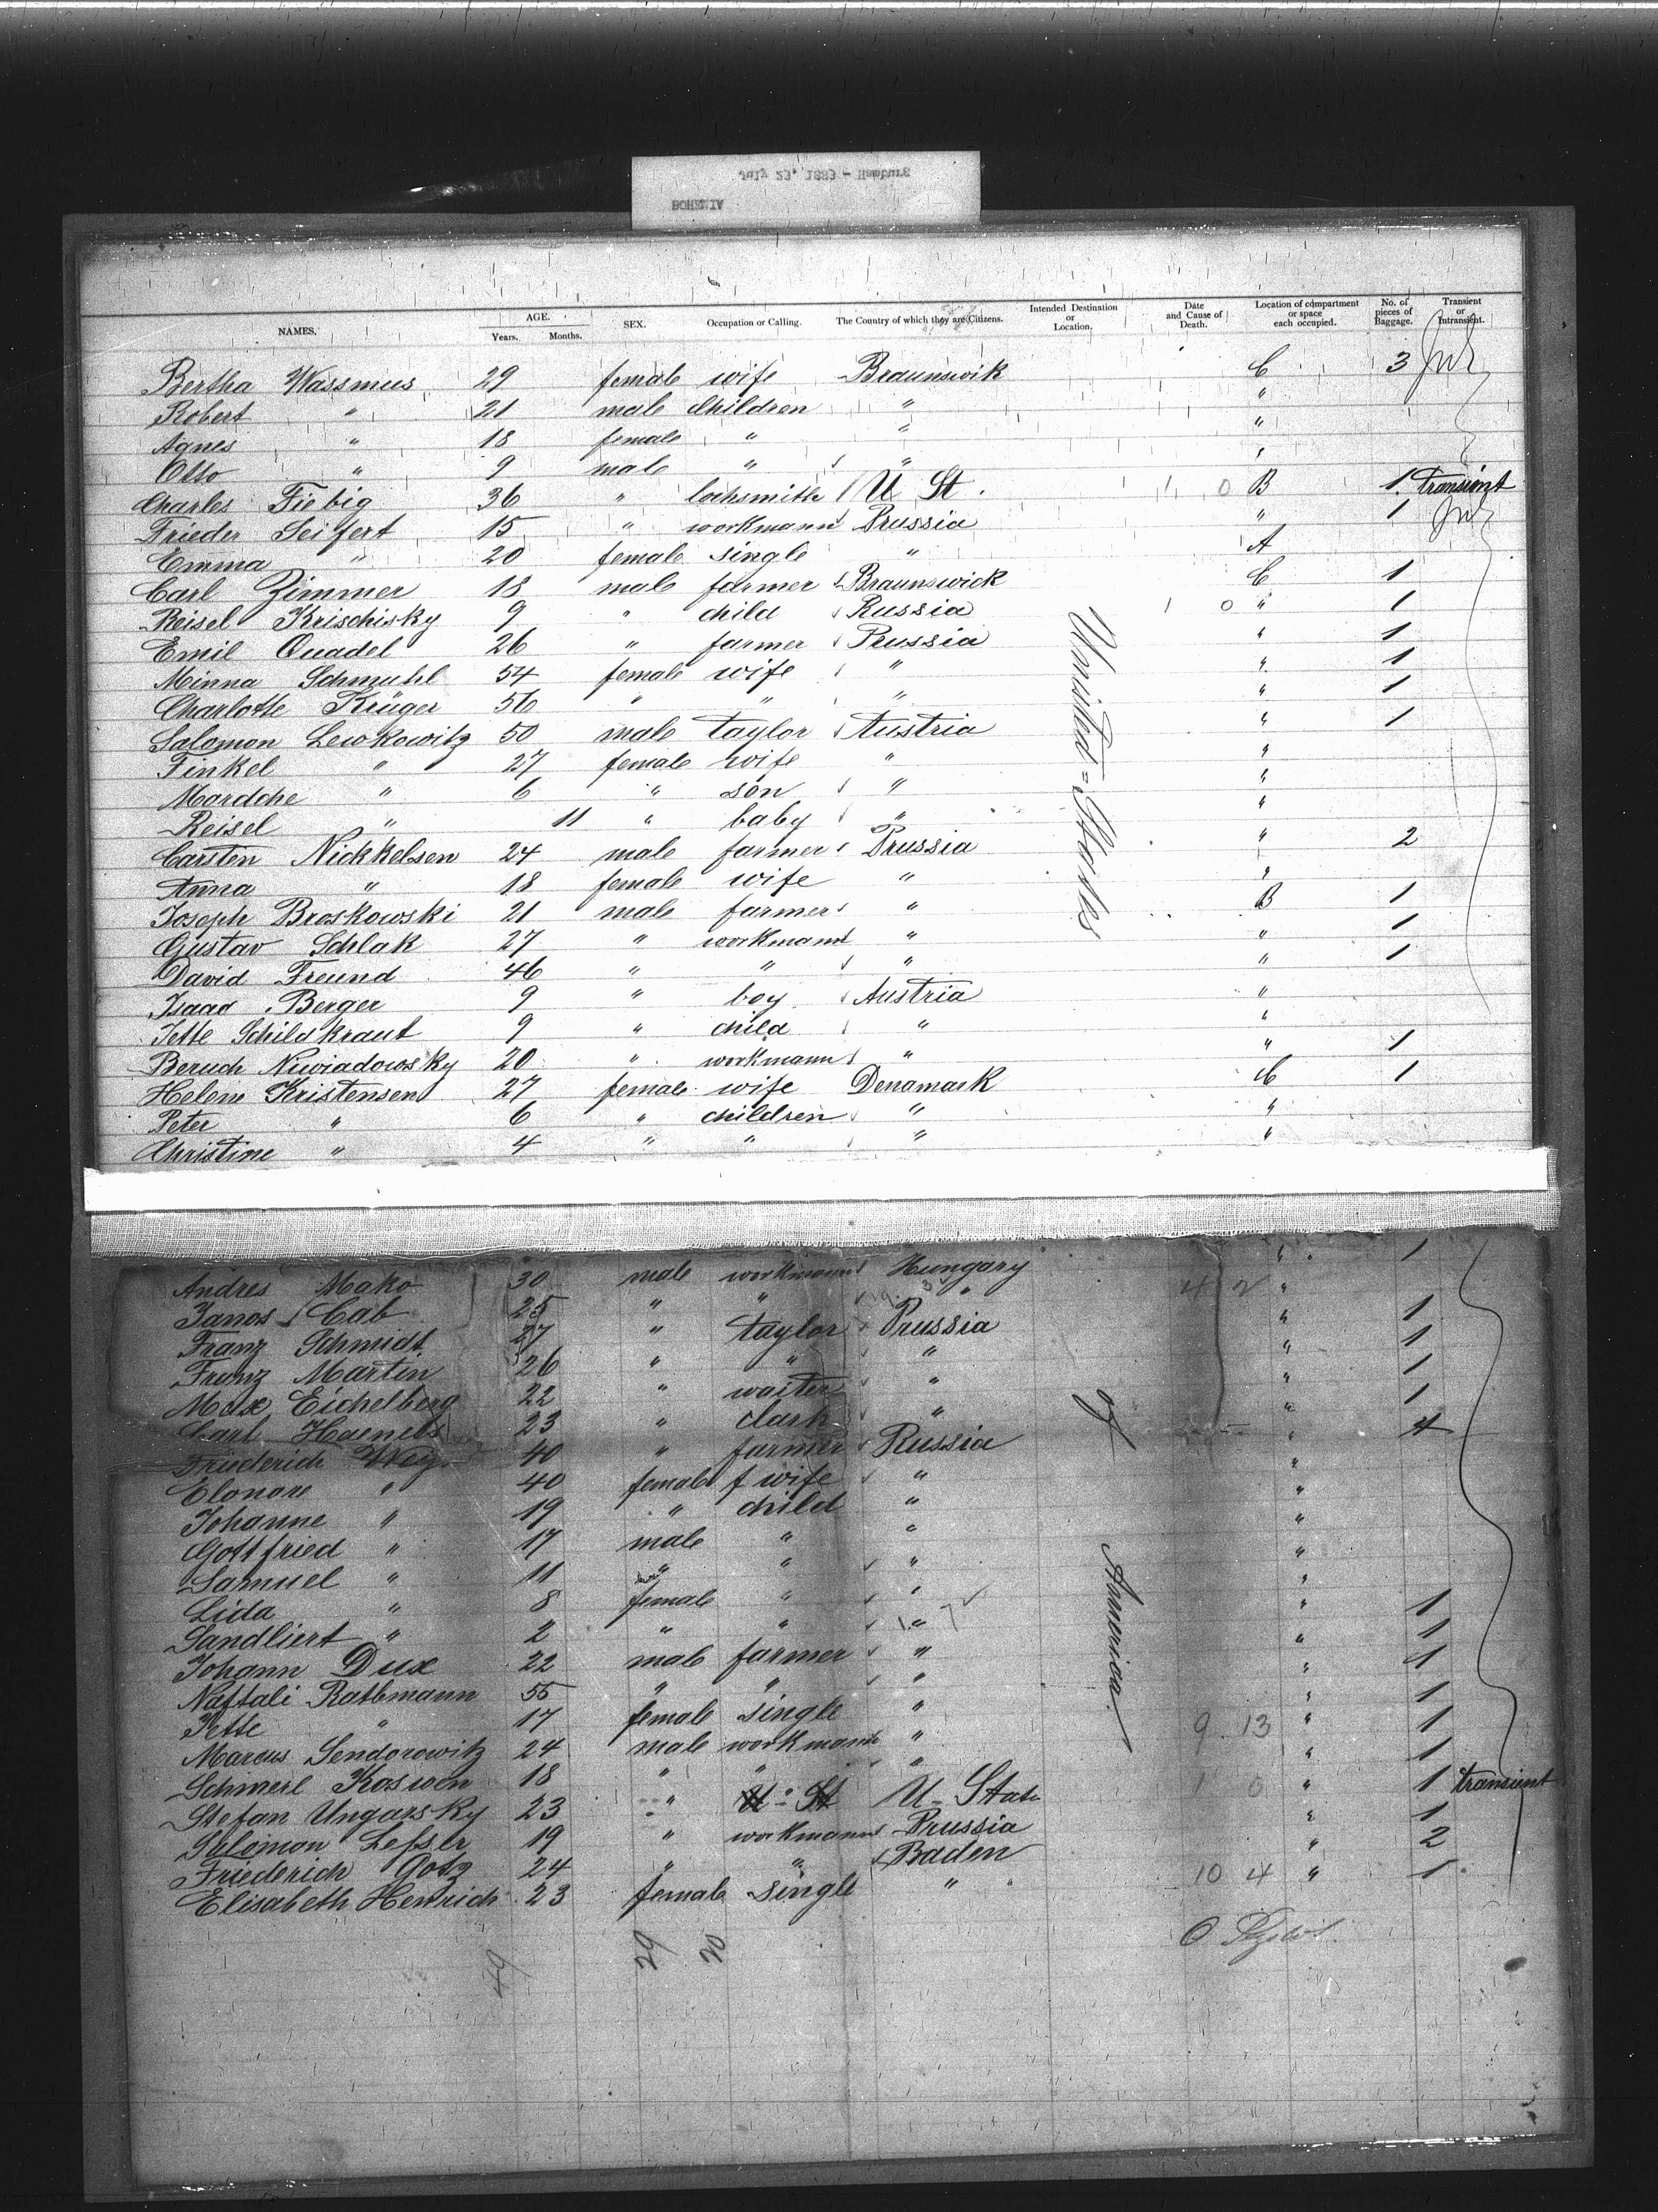 July 23, 1883 - Hamburg
BOHEMIA
NAMES. AGE. Years. Months. SEX. Occupation or Calling. The Country of which they are Citizens. Intended Destination or Location. Date and Cause of Death. Location of compartment or space each occupied. No. of pieces of Baggage. Transient or Intransient.
Bertha Wassmus 29 female wife Braunswik C 3
Robert " 21 male children " "
Agnes " 18 female " " "
Otto " 9 male " " "
Charles Fiebig 36 " lochsmith U St. 1 0 B 1 transient
Frieder Seifert 15 " workmann Prussia " 1
Emma " 20 female single " A
Carl Zimmer 18 male farmer Braunswick C 1
Reisel Krischisky 9 " child Russia 1 0 " 1
Emil Quadel 26 " farmer Prussia " 1
Minna Schmuhl 54 female wife " " 1
Charlotte Krüger 56 " " " " 1
Salomon Lewkowitz 50 male taylor Austria " 1
Finkel " 27 female wife " "
Mordche " 6 " son " "
Reisel " 11 " baby " "
Carsten Nickkelsen 24 male farmer Prussia " 2
Anna " 18 female wife " "
Joseph Broskowski 21 male farmer " B 1
Gustav Schlak 27 " workmann " " 1
David Freund 46 " " " " 1
Isaac Berger 9 " boy Austria "
Jette Schildkraut 9 " child " "
Beruch Niwiadowsky 20 " workmann " " 1
Helene Kristensen 27 female wife Denamark C 1
Peter " 6 " children " "
Christine " 4 " " " "
United=States
Andres Mako 30 male workmann Hungary " 1
Janos Cab 25 " " " 4 2 "
Franz Schmidt 27 " taylor Prussia " 1
Franz Martin 26 " " " " 1
Max Eichelberg 22 " waiter " " 1
Carl Haenels 23 " clark " " 1
Friederich Wey 40 " farmer Russia " 4
Elonore " 40 female f wife " "
Johanne " 19 " child " "
Gottfried " 17 male " " "
Samuel " 11 " " " "
Lida " 8 female " " "
Sandliert " 2 " " " " 1
Johann Dux 22 male farmer " " 1
Naftali Rathmann 55 " " " " 1
Jette " 17 female single " " 1
Marcus Sendorowitz 24 male workmann " 9 13 " 1
Schmerl Koswen 18 " " " " 1
Stefan Ungarsky 23 " U-St U-State 1 0 " 1 transient
Salomon Lessler 19 " workmann Prussia " 1
Friederich Gotz 24 " " Baden " 2
Elisabeth Henrich 23 female single " 10 4 " 1
of America
49 29 20